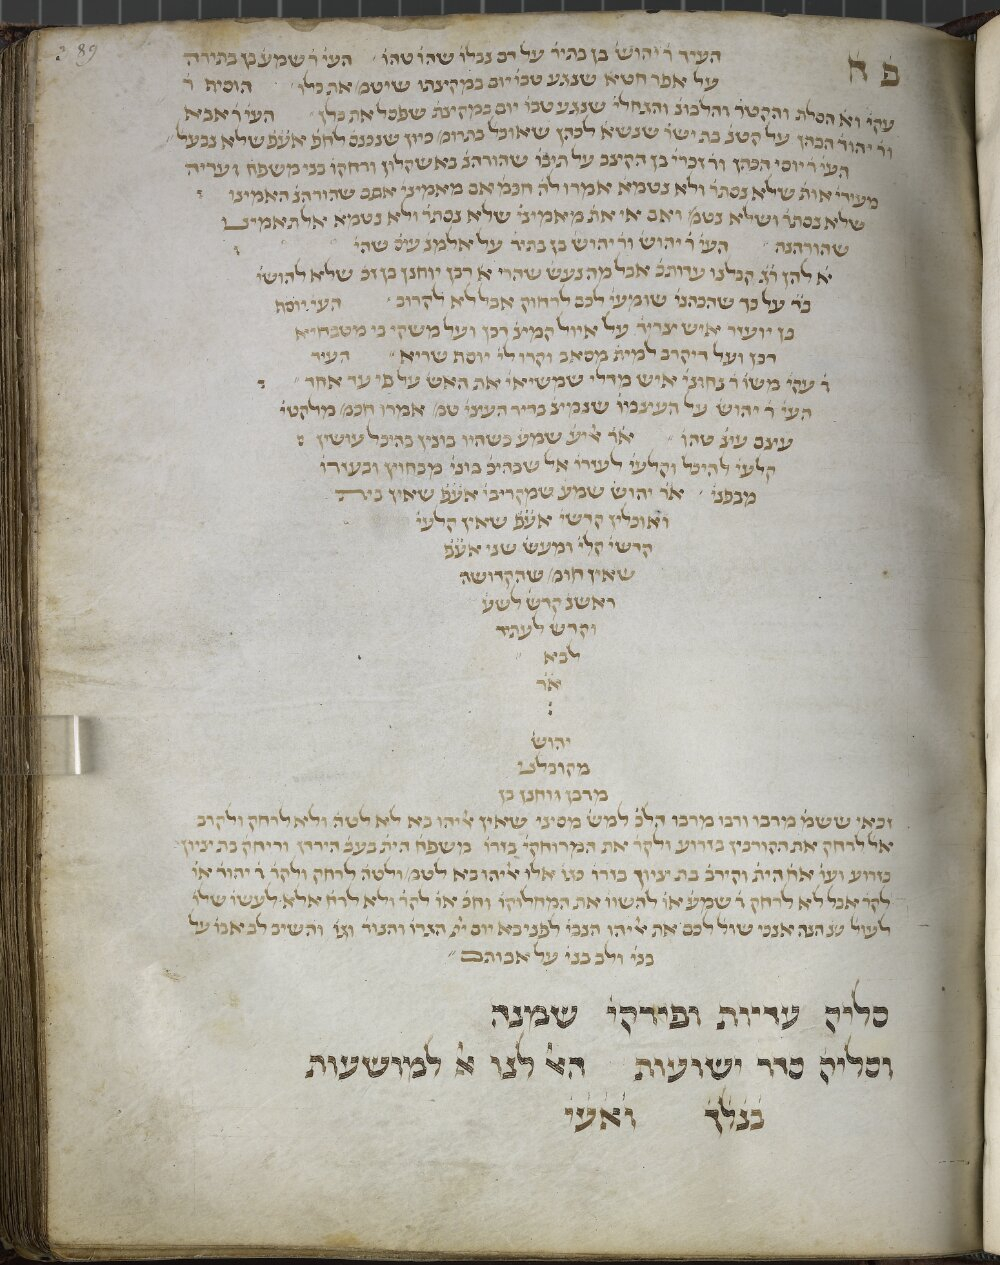 89
פ ח
העיד ר׳ יהוש׳ בן בתיר׳ על דם נבלו׳ שהו׳ טהו׳ העי׳ ר׳ שמע׳ בן בתירה
על אפר חטא׳ שנגע טבו׳ יום במקיצתו שיטמ׳ את כלו׳ הוסיף ר׳
עקי׳ וא׳ הסלת והקטר׳ והלבונ׳ והגחלי׳ שנגע טבו׳ יום במקיצת׳ שפסל את כלן העי׳ ר׳ אבא
ור׳ יהוד׳ הכהן על קטנ׳ בת יש׳ שנשא׳ לכהן שאוכל׳ בתרומ׳ כיון שנכנס׳ לחפ׳ אע״פ שלא נבעל׳
העי׳ ר׳ יוסי הכהן ור׳ זכרי׳ בן הקיצב על תינו׳ שהורהנ׳ באשקלון ורחקו׳ בני משפח׳ ועדיה
מעידי׳ אות׳ שלא נסתר׳ ולא נטמא׳ אמרו לה׳ חכמ׳ אם מאמיני׳ אתם שהורהנ׳ האמינו
שלא נסתר׳ ושלא נטמ׳ ואם אי את׳ מאמיני׳ שלא נסתר׳ ולא נטמא׳ אל תאמינו
שהורהנה העי׳ ר׳ יהוש׳ ור׳ יהוש׳ בן בתיר׳ על אלמנ׳ עיס׳ שהי׳
א׳ להן ר״ג קבלנו עדותכ׳ אבל מה נעש׳ שהרי א׳ רבן יוחנן בן זכ׳ שלא להושי׳
ב״ד על כך שהכהני׳ שומעי׳ לכם לרחוק אבל לא לקרוב׳ העי׳ יוסף
בן יועזר איש צרידה על איול קמיצ׳ דכן ועל משקי׳ בי מטבחיא
דכן ועל דיקרב למית׳ מסאב וקרו לי׳ יוסף שריא העיד
ר׳ עקי׳ משו׳ ר׳ נחוני׳ איש מדלי׳ שמשיאי׳ את האש׳ על פי עד אחד
העי׳ ר׳ יהוש׳ על העצמו׳ שנמצ׳ בדיר העצי׳ טמ׳ אמרו חכמ׳ מלקטי׳
עצם עצ׳ טהו׳ א״ר אליע׳ שמע׳ כשהיו בונין בהיכל עושין
קלעי׳ להיכל וקלעי׳ לעזרו׳ אל שבהיכ׳ בוני׳ מבחוץ ובעזרו׳
מבפני׳ א״ר יהוש׳ שמע׳ שמקריבי׳ אע״פ שאין בית
ואוכלין קדשי׳ אע״פ שאין קלעי׳
קדשי׳ קלי׳ ומעש׳ שני אע״פ
שאין חומ׳ שהקדושה
ראשנ׳ קדש׳ לשע׳
וקדש׳ לעתיד
לבא
א״ר
יהוש׳
מקובלנו
מרבן יוחנן בן
זכאי ששמ׳ מירבו ורבו מרבו הלכ׳ למש׳ מסיני שאין אליהו בא לא לטה׳ ולא לרחק ולקרב
אל׳ לרחק את הקורבין בזרוע ולקר׳ את המרוחקי׳ בזרו׳ משפח׳ הית׳ בעב׳ הירדן וריחק׳ בת ציון
בזרוע ועו׳ אח׳ הית׳ וקירב׳ בת ציון בזרו׳ כגו׳ אלו אליהו בא לטמ׳ ולטה׳ לרחק ולקר׳ ר׳ יהוד׳ או׳
לקר׳ אבל לא לרחק ר׳ שמע׳ או׳ להשוו׳ את המחלוקו׳ וחכ׳ או׳ לא לקר׳ ולא לרח׳ אלא לעשו׳ שלו׳
לעול׳ שנ׳ הנה אנכי שול׳ לכם את אליהו הנבי׳ לפני בא יום יי׳ הגדו׳ והנור׳ וגו׳ והשיב לב אבו׳ על
בני׳ ולב בני׳ על אבותם
סליק עדיות ופירקי׳ שמנה
וסליק סדר ישועות הא׳ לנו א׳ למושעות
בנלך ואעי